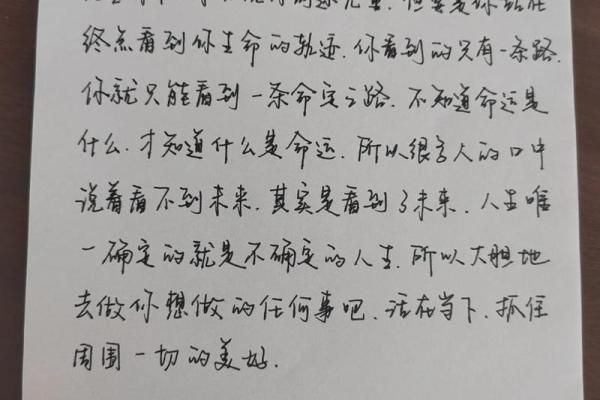 但要是你站在
终点看到你生命的轨迹.你看到的只有一条路.
你就只能看到一条命定之路.不知道命运是
什么.才知道什么是命运.所以很多人的口中
说着看不到未来.其实是看到了未来.人生唯
一确定的就是不确定的人生.所以大胆地
去做你想做的任何事吧.活在当下.抓住
周围一切的美好.